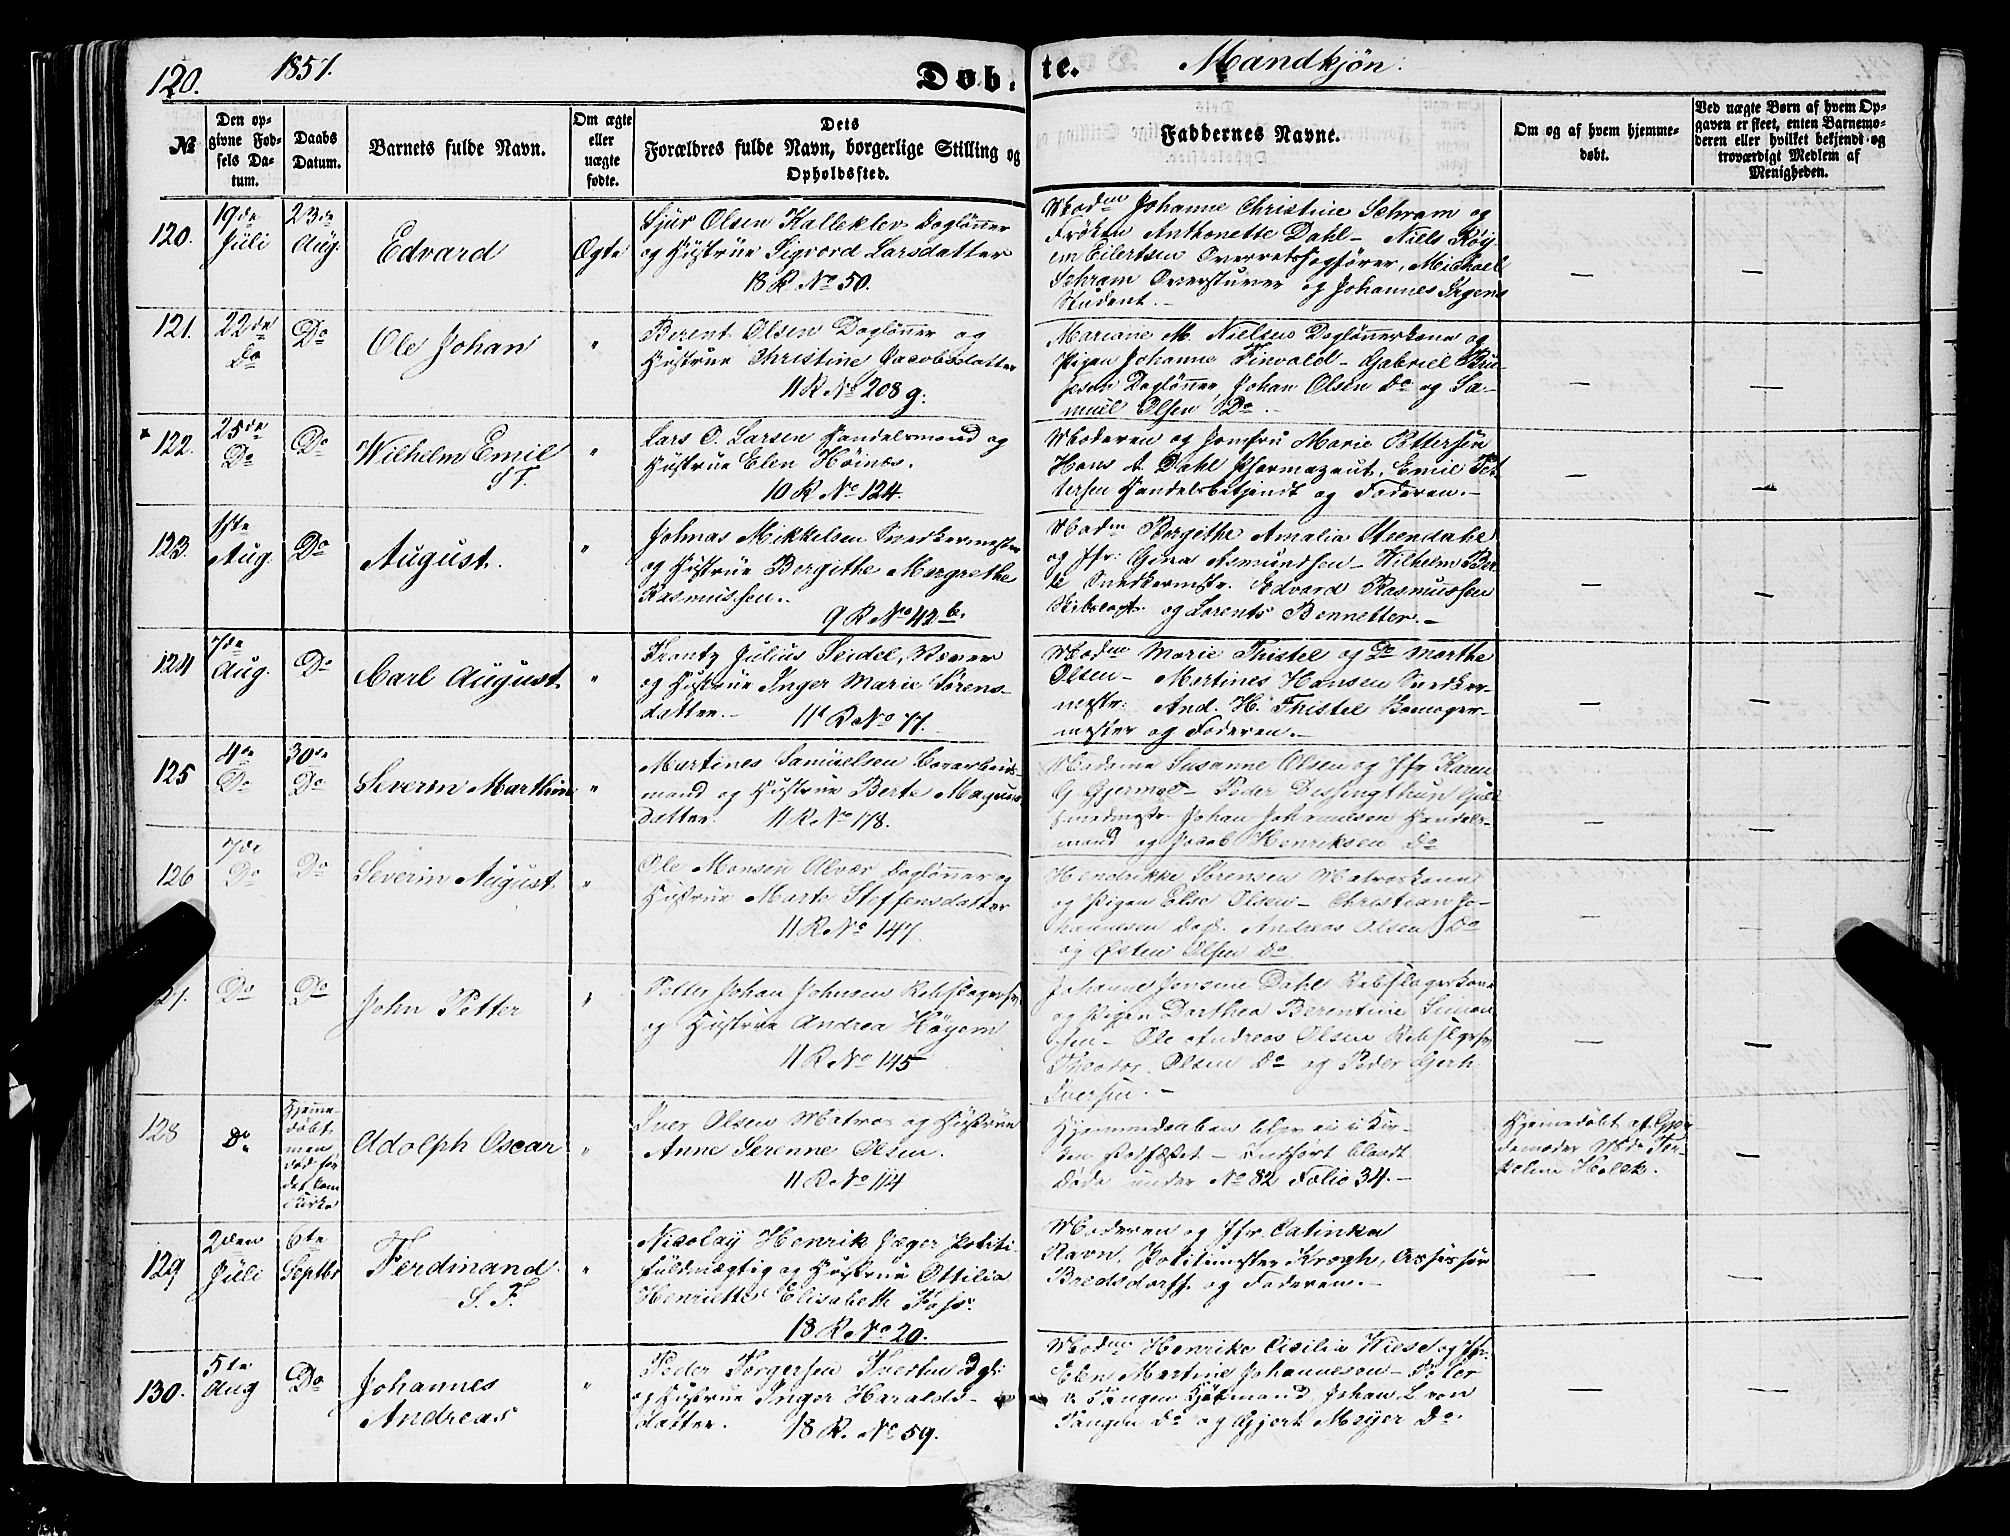 120. 1857. Døb-te. Mandkjøn.
№
Den op-
givne Fød-
sels Da-
tum.
Daabs
Datum.
Barnets fulde Navn.
Om ægte
eller
uægte
fødte.
Dets
Forældres fulde Navn, borgerlige Stilling og
Opholdssted.
Faddernes Navne.
Om og af hvem hjemme-
døbt.
Ved uægte Børn af hvem Op-
gaven er skeet, enten Barnemo-
deren eller hvilket bekjendt og
troværdigt Medlem af
Menigheden.
120.
19de
Juli
23de
Aug.
Edvard
Ægte
Sjur Olsen Kalleklev Dagløner
og Hustrue Sigvord Larsdatter
18 R. No 50.
Madm Johanne Christine Schram og
Frøken Anthonette Dahl – Niels
Eilertsen Overretssagfører, Michael
Schram Overstyrer og Johannes
Student. –
—
—
121.
22de
Do
Do
Ole Johan
"
Berent Olsen Dagløner og
Hustrue Christine Jacobsdatter
11 R No 208 g.
Mariane M. Nielsen Daglønerkone og
Pigen Johanne Finvold – Gabriel
Dagløner Johan Olsen Do og Sa-
muel Olsen Do. –
—
—
122.
25de
Do
Do
Wilhelm Emil
S. F.
"
Lars O. Larsen Handelsmand og
Hustrue Elen Høines.
10 R No 124.
Moderen og Jomfru Marie Pettersen
Hans A. Dahl Pharmazeut, Emil Pet-
tersen Handelsbetjendt og Faderen. –
—
—
123.
1ste
Aug.
Do
August.
"
Johnas Mikkelsen Snedkermester
og Hustrue Bergithe Margrethe
Rasmussen.
9 R No 42 b.
Madm Bergithe Amalia Steendahl
og Jfr. Gina Asmundsen – Wilhelm
Snedkermstr. Edvard Rasmussen
og Lorents Bennetter. –
—
—
124
7de
Aug.
Do
Carl August
"
Frantz Julius Seidel, Væver
og Hustrue Inger Marie Sørens-
datter. – 11 R No 77.
Madm Marie Thistel og Do Marthe
Olsen – Martines Hansen Snedker-
mestr: And. H. Thistel
mester og Faderen. –
—
—
125
4de
Do
30te
Do
Severin Marthin
"
Martines Samuelsen
mand og Hustrue Berte
datter. 11 R No 178.
Madame Susanne Olsen og Jfr Karen
G Gjermoe – Peder
smedmestr. Johan Johannesen Handels-
mand og Jacob Henriksen Do
—
—
126
7de
Do
Do
Severin August
"
Ole Monsen Alvær Dagløner og
Hustrue Marte Steffensdatter
11 R. No 147
Hendrikke Sørensen Matroskone
og Pigen Else Olsen – Christian Jo-
hannesen Dagl. Andreas Olsen Do
og Østen Olsen Do
—
—
Do
Do
John Petter
"
Petter Johan Johnsen Rebslagersv
og Hustrue Andrea Høyem
11 R No 145
Johanne Jensine Dahl Rebslagerkone
og Pigen Dorthea Berentine Simon-
sen – Ole Andreas Olsen Rebslgrsv
Theodor Olsen Do og Peder Gerh.
Iversen. –
—
—
128
Do
Hjemme-
døbt
men
død før
det kom
i Kirke
Adolph Oscar
"
Iver Olsen Matros og Hustrue
Anne Serenne Olsen.
11 R No 114
Hjemmedaaben blev ei i Kir-
ken stadfæstet – Indført blandt
Døde under No 82 Folio 34. –
Hjemmedøbt af Gjor-
demoder
Holck.
—
129
2den
Juli
6te
Septbr
Ferdinand
S. F.
"
Nicolay Henrik Jæger Politi-
fuldmægtig og Hustrue Ottilia
Henriette Elisabeth Foss.
18 R. No 20.
Moderen og Jfr. Catinka
Ravn, Politimester Krogh, Assessor
Bredsdorff og Faderen. –
—
—
130.
5te
Aug
Do
Johannes
Andreas
"
Peder Torgersen Dgl.
og Hustrue Inger Haralds-
datter. 18 R. No 59.
Madm Henrike Cisilia Wiese og Jfr.
Elen Martine Johannesen – Peter
v. Tangen Kjøbmand Johan L. von
Tangen Do og Gjert Meyer Do.
—
—